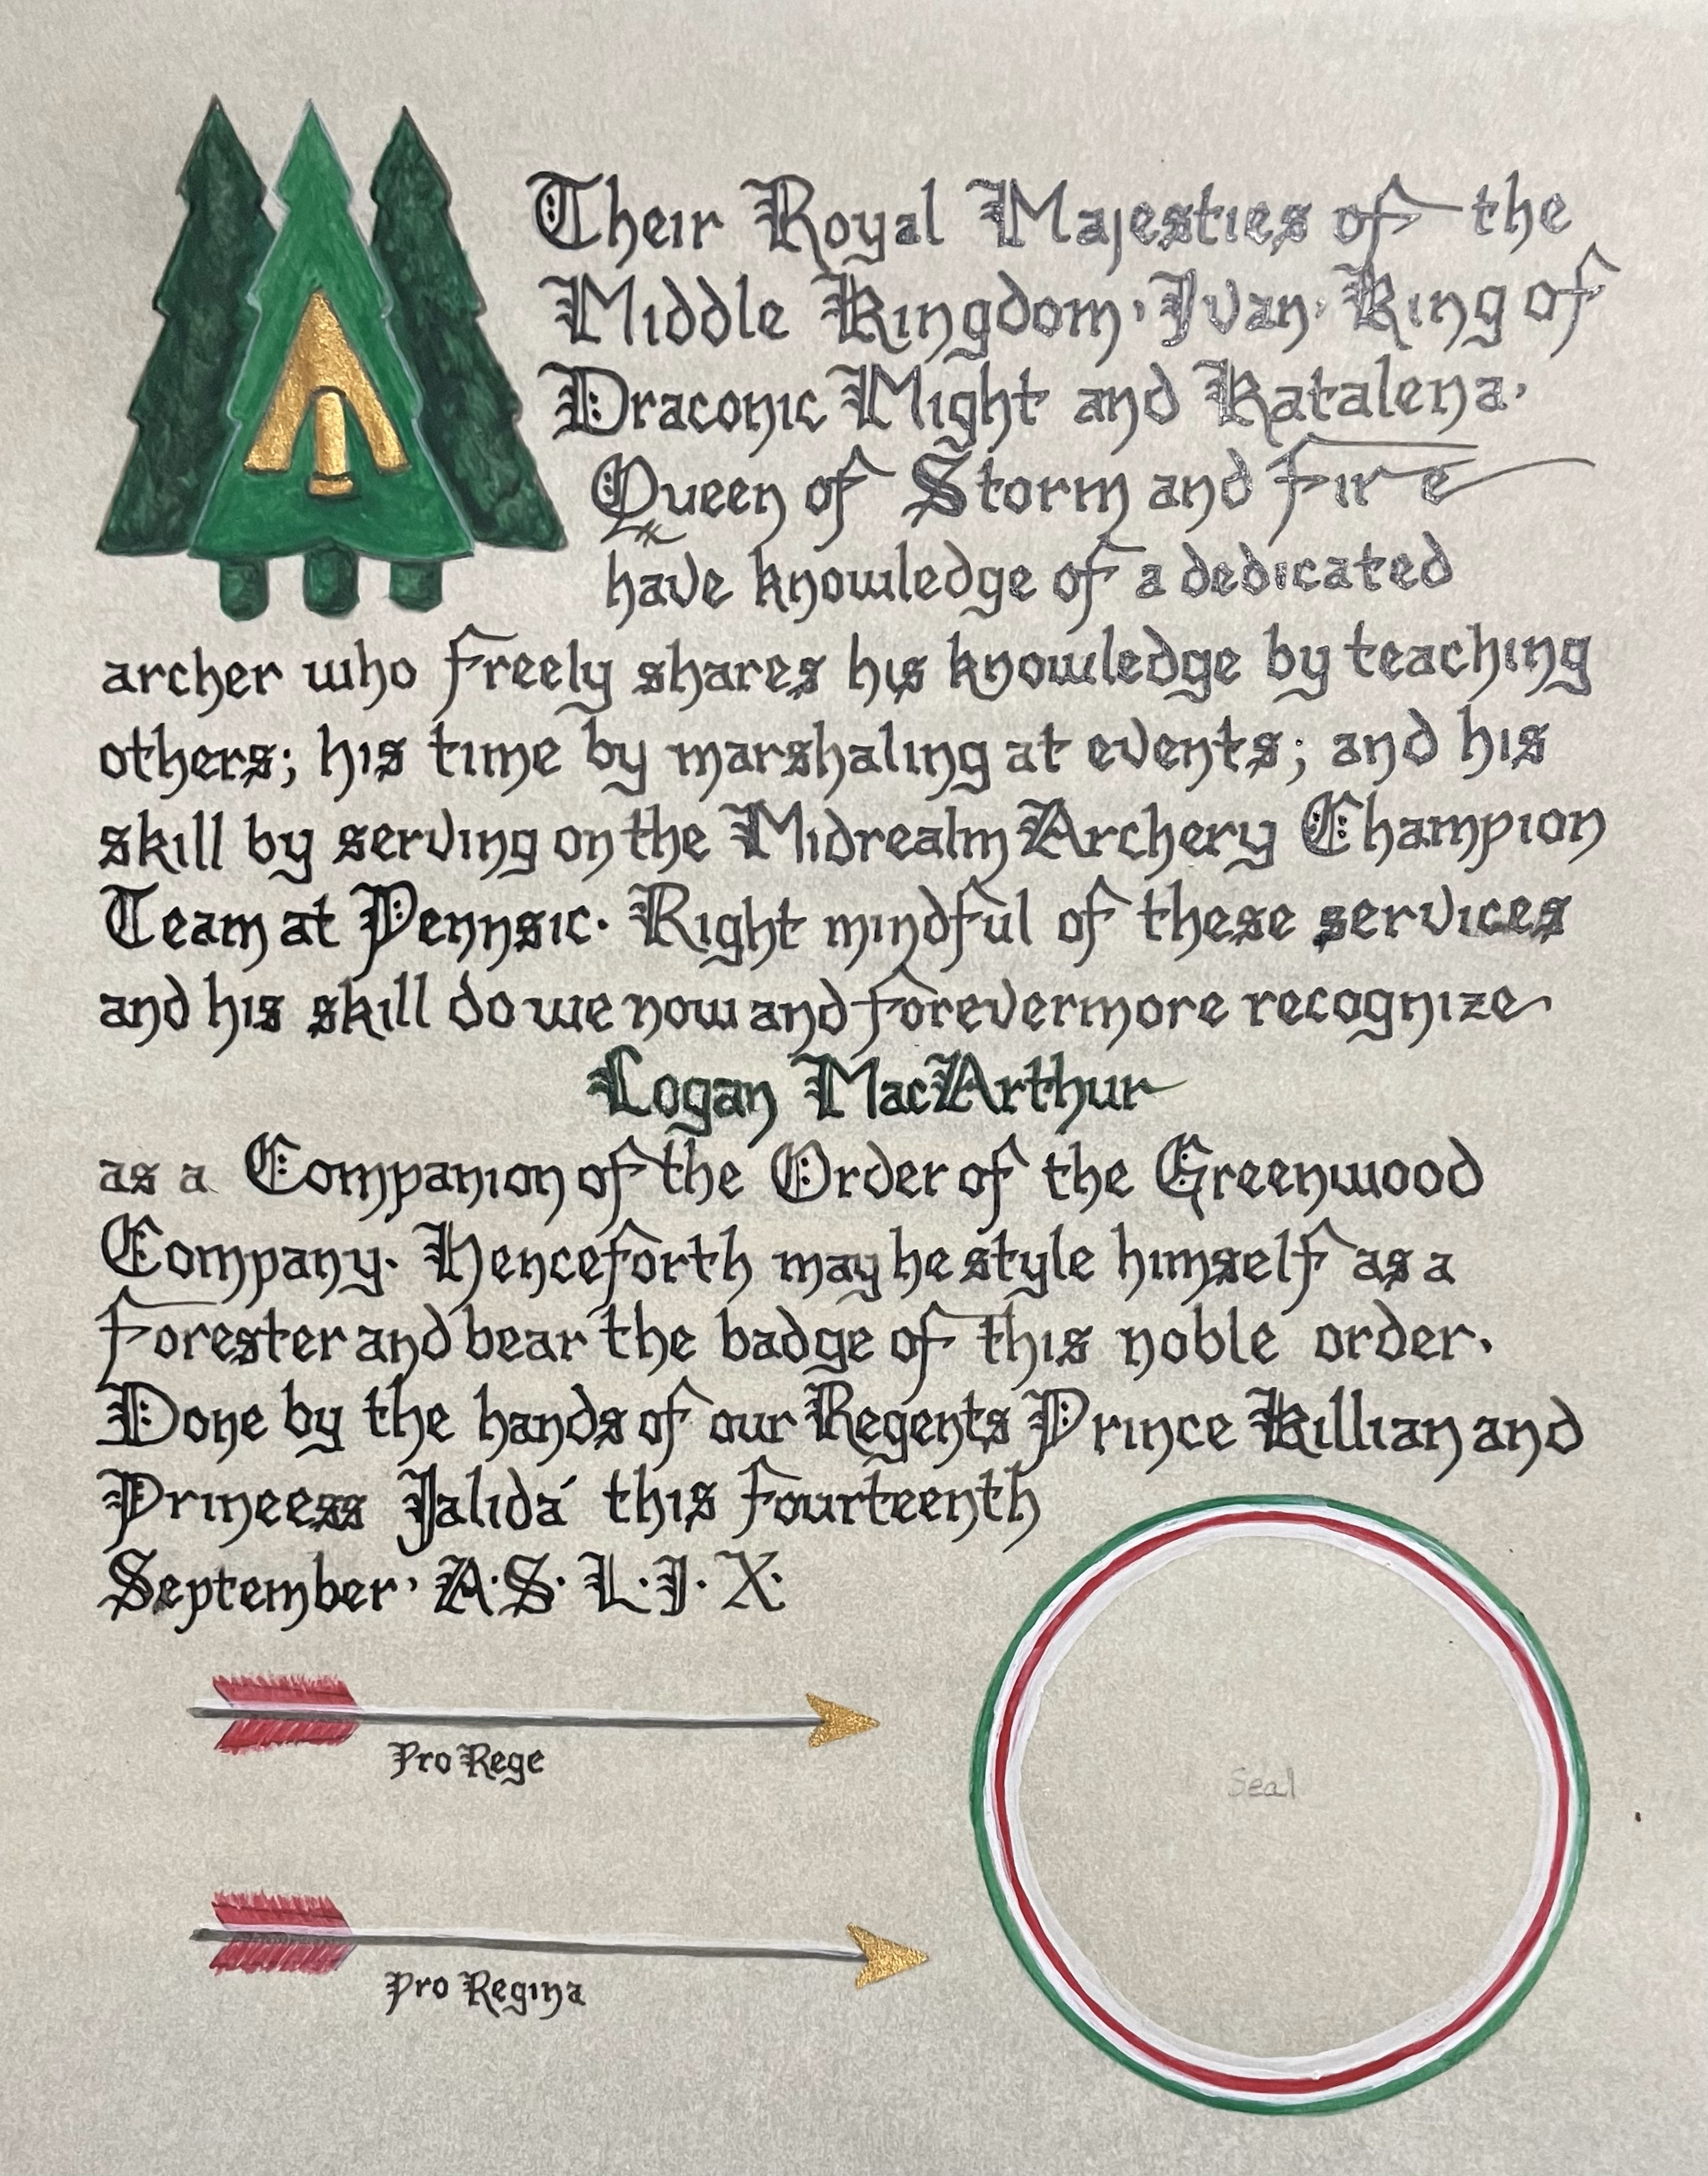 Their Royal Majesties of the
Middle Kingdom, Ivan, King of
Draconic Might and Katalena,
Queen of Storm and Fire
have knowledge of a dedicated
archer who freely shares his knowledge by teaching
others; his time by marshaling at events; and his
skill by serving on the Midrealm Archery Champion
Team at Pennsic. Right mindful of these services
and his skill do we now and forevermore recognize
Logan MacArthur
as a Companion of the Order of the Greenwood
Company. Henceforth may he style himself as a
forester and bear the badge of this noble order.
Done by the hands of our Regents Prince Killian and
Princess Jalidá this fourteenth
September, A.S. L.I.X.
Pro Rege
Seal
Pro Regina